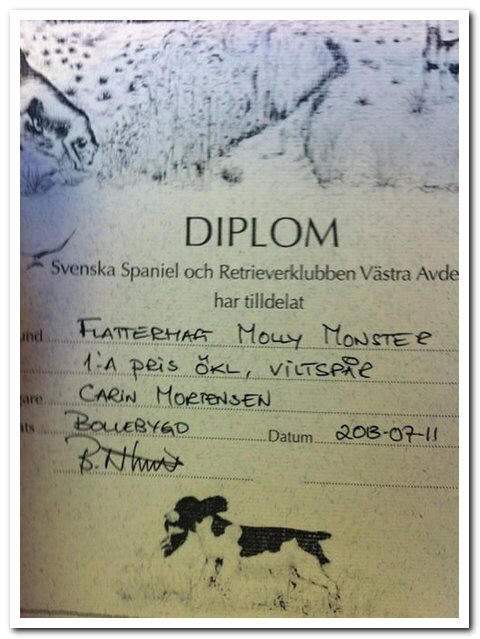 DIPLOM
Svenska Spaniel och Retrieverklubben Västra Avde
har tilldelat
und FLATTERHAFT MOLLY MONSTER
1:A pris ÖKL, VILTSPÅR
are CARIN MORTENSEN
ats BOLLEBYGD Datum 2013-07-11